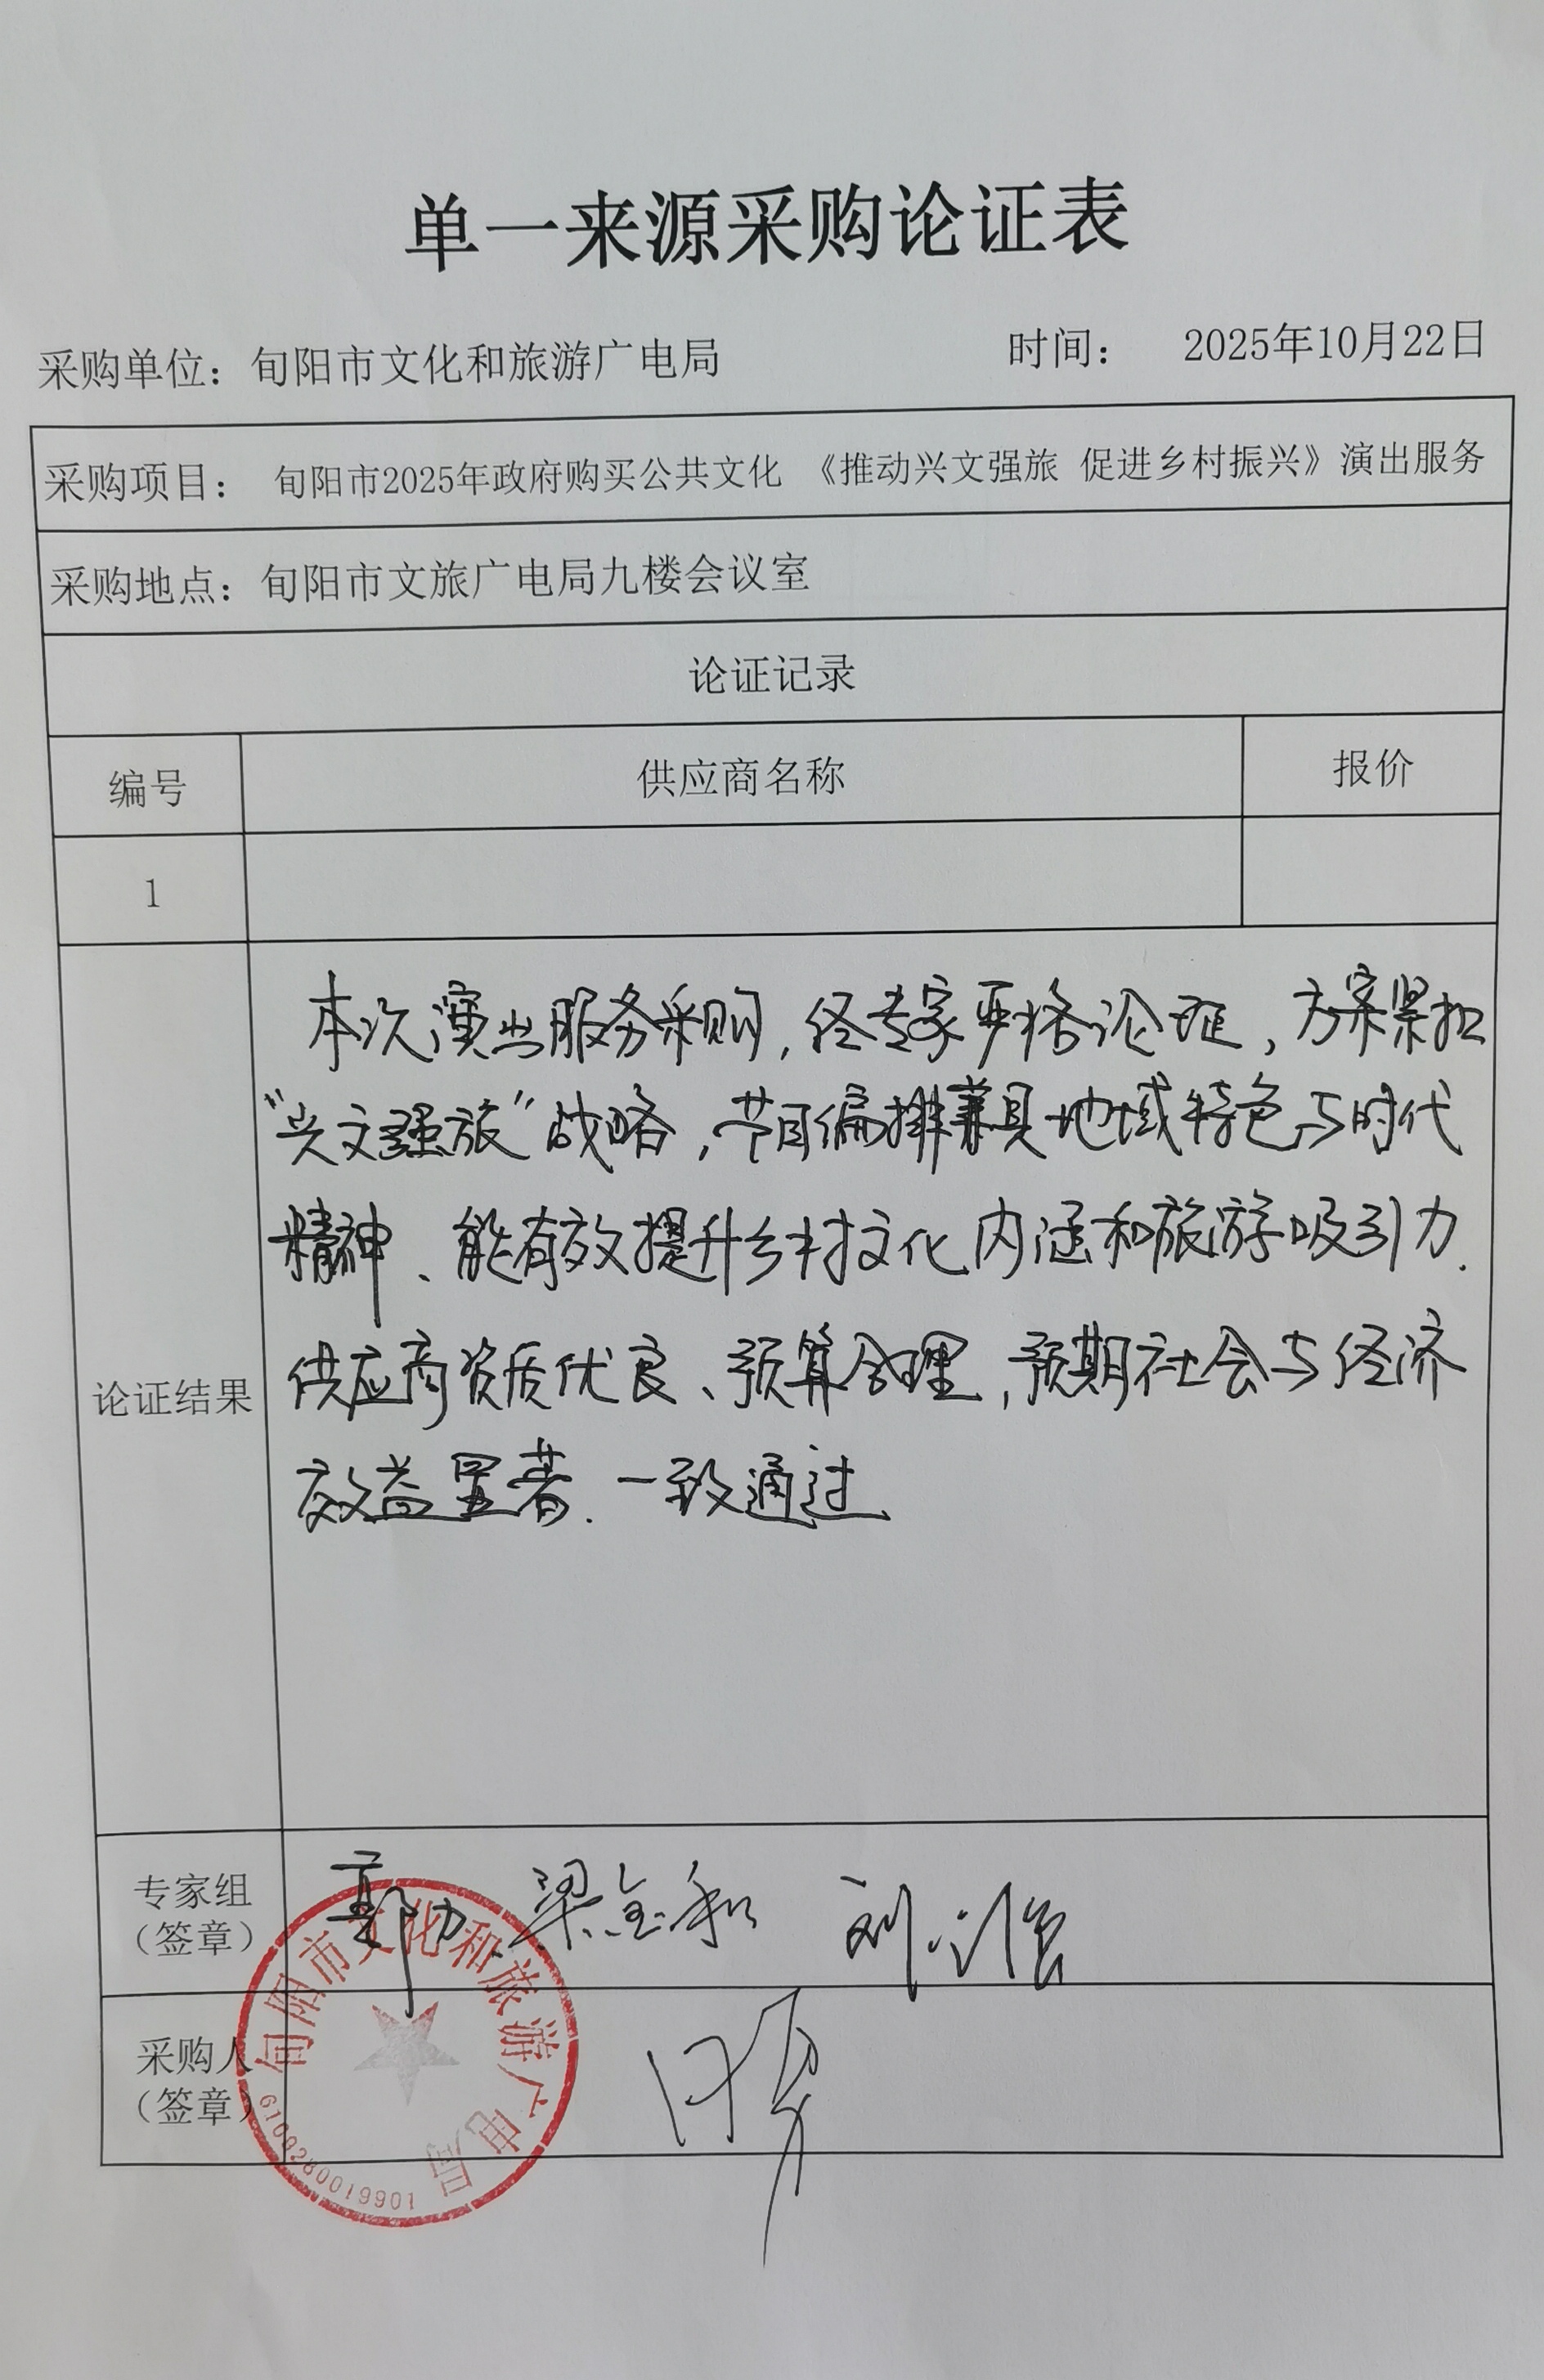 单一来源采购论证表
采购单位：旬阳市文化和旅游广电局 时间： 2025年10月22日
采购项目： 旬阳市2025年政府购买公共文化 《推动兴文强旅 促进乡村振兴》演出服务
采购地点：旬阳市文旅广电局九楼会议室
论证记录
编号 供应商名称 报价
1
本次演出服务采购，经专家严格论证，方案紧扣
“兴文强旅”战略，节目编排兼具地域特色与时代
精神、能有效提升乡村文化内涵和旅游吸引力.
供应商资质优良、预算合理，预期社会与经济
效益显著.一致通过
论证结果
专家组
（签章）
梁金和
采购人
（签章）
旬阳市文化和旅游广电局
6109280019901